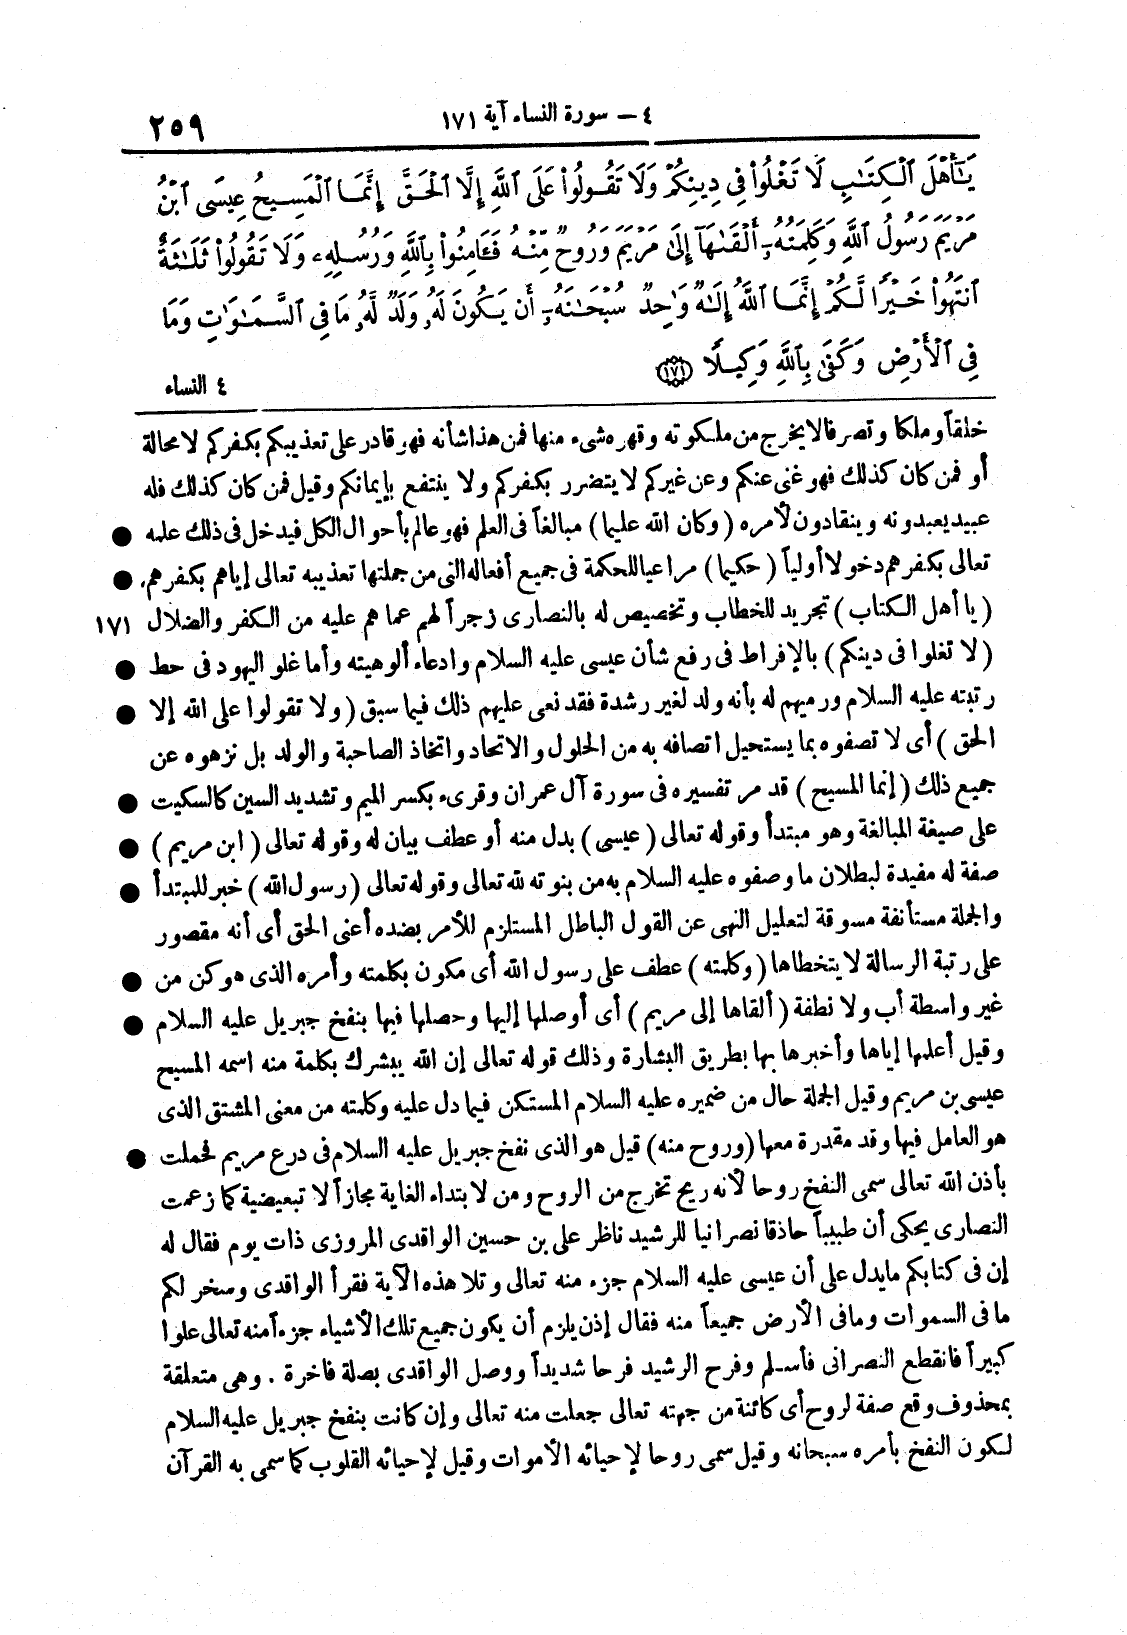 ٤ – سورة النساء آية ١٧١ ٢٥٩
يَٰٓأَهْلَ ٱلْكِتَٰبِ لَا تَغْلُوا۟ فِى دِينِكُمْ وَلَا تَقُولُوا۟ عَلَى ٱللَّهِ إِلَّا ٱلْحَقَّ إِنَّمَا ٱلْمَسِيحُ عِيسَى ٱبْنُ
مَرْيَمَ رَسُولُ ٱللَّهِ وَكَلِمَتُهُۥٓ أَلْقَىٰهَآ إِلَىٰ مَرْيَمَ وَرُوحٌ مِّنْهُ فَـَٔامِنُوا۟ بِٱللَّهِ وَرُسُلِهِۦ وَلَا تَقُولُوا۟ ثَلَٰثَةٌ
ٱنتَهُوا۟ خَيْرًا لَّكُمْ إِنَّمَا ٱللَّهُ إِلَٰهٌ وَٰحِدٌ سُبْحَٰنَهُۥٓ أَن يَكُونَ لَهُۥ وَلَدٌ لَّهُۥ مَا فِى ٱلسَّمَٰوَٰتِ وَمَا
فِى ٱلْأَرْضِ وَكَفَىٰ بِٱللَّهِ وَكِيلًا ١٧١
٤ النساء
خلقاً وملكا وتصرفا لا يخرج من ملكوته وقهره شىء منها فمن هذا شأنه فهو قادر على تعذيبكم بكفركم لا محالة
أو فمن كان كذلك فهو غنى عنكم وعن غيركم لا يتضرر بكفركم ولا ينتفع بإيمانكم وقيل فمن كان كذلك فله
عبيد يعبدونه وينقادون لأمره ( وكان الله عليما ) مبالغاً فى العلم فهو عالم بأحوال الكل فيدخل فى ذلك علمه ●
تعالى بكفرهم دخولا أولياً ( حكيما ) مراعيا للحكمة فى جميع أفعاله التى من جملتها تعذيبه تعالى إياهم بكفرهم. ●
( يا أهل الكتاب ) تجريد للخطاب وتخصيص له بالنصارى زجراً لهم عما هم عليه من الكفر والضلال ١٧١
( لا تغلوا فى دينكم ) بالإفراط فى رفع شأن عيسى عليه السلام وادعاء ألوهيته وأما غلو اليهود فى حط ●
رتبته عليه السلام ورميهم له بأنه ولد لغير رشدة فقد نعى عليهم ذلك فيما سبق ( ولا تقولوا على الله إلا ●
الحق ) أى لا تصفوه بما يستحيل اتصافه به من الحلول والاتحاد واتخاذ الصاحبة والولد بل نزهوه عن
جميع ذلك ( إنما المسيح ) قد مر تفسيره فى سورة آل عمران وقرىء بكسر الميم وتشديد السين كالسكيت ●
على صيغة المبالغة وهو مبتدأ وقوله تعالى ( عيسى ) بدل منه أو عطف بيان له وقوله تعالى ( ابن مريم ) ●
صفة له مفيدة لبطلان ما وصفوه عليه السلام به من بنوته لله تعالى وقوله تعالى ( رسول الله ) خبر للمبتدأ ●
والجملة مستأنفة مسوقة لتعليل النهى عن القول الباطل المستلزم للأمر بضده أعنى الحق أى أنه مقصور
على رتبة الرسالة لا يتخطاها ( وكلمته ) عطف على رسول الله أى مكون بكلمته وأمره الذى هو كن من ●
غير واسطة أب ولا نطفة ( ألقاها إلى مريم ) أى أوصلها إليها وحصلها فيها بنفخ جبريل عليه السلام ●
وقيل أعلمها إياها وأخبرها بها بطريق البشارة وذلك قوله تعالى إن الله يبشرك بكلمة منه اسمه المسيح
عيسى بن مريم وقيل الجملة حال من ضميره عليه السلام المستكن فيما دل عليه وكلمته من معنى المشتق الذى
هو العامل فيها وقد مقدرة معها ( وروح منه ) قيل هو الذى نفخ جبريل عليه السلام فى درع مريم فحملت ●
بأذن الله تعالى سمى النفخ روحا لأنه ريح تخرج من الروح ومن لابتداء الغاية مجازاً لا تبعيضية كما زعمت
النصارى يحكى أن طبيباً حاذقا نصرانيا للرشيد ناظر على بن حسين الواقدى المروزى ذات يوم فقال له
إن فى كتابكم ما يدل على أن عيسى عليه السلام جزء منه تعالى وتلا هذه الآية فقرأ الواقدى وسخر لكم
ما فى السموات وما فى الأرض جميعاً منه فقال إذن يلزم أن يكون جميع تلك الأشياء جزءاً منه تعالى علوا
كبيراً فانقطع النصرانى فأسلم وفرح الرشيد فرحا شديداً ووصل الواقدى بصلة فاخرة . وهى متعلقة
بمحذوف وقع صفة لروح أى كائنة من جهته تعالى جعلت منه تعالى وإن كانت بنفخ جبريل عليه السلام
لكون النفخ بأمره سبحانه وقيل سمى روحا لإحيائه الأموات وقيل لإحيائه القلوب كما سمى به القرآن